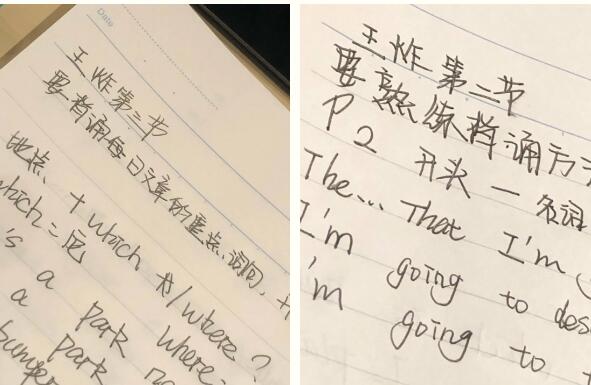 Date
王炸第三节
要背诵每日文章的重点词句,
地点 + which 节/where?
which = 宛
's a park where
a park
bumper
王炸第二节
要熟练背诵方
P2 开头 一 名词
The... That I'm
I'm going to des
I'm going to